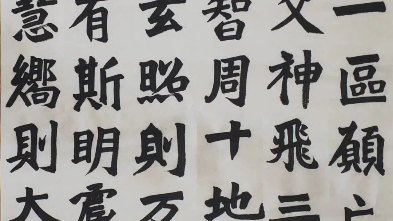 一區願亡
父神飛三
智周十地
玄照則万
有斯明震
慧嚮則大